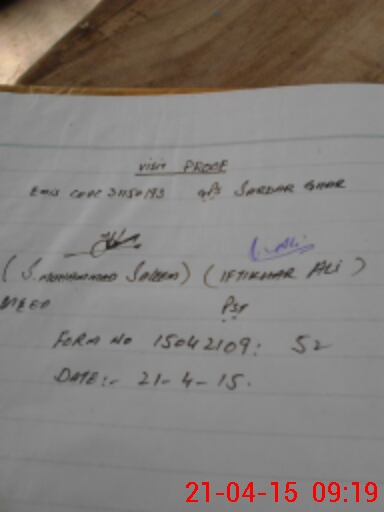 Visit PROOF
EMIS CODE 31150193 GPS SARDAR GHAR
I. Ali
(S. MUHAMMAD SALEEM) (IFTIKHAR ALI)
PST
FORM NO 15042109: 52
DATE:- 21-4-15.
21-04-15 09:19